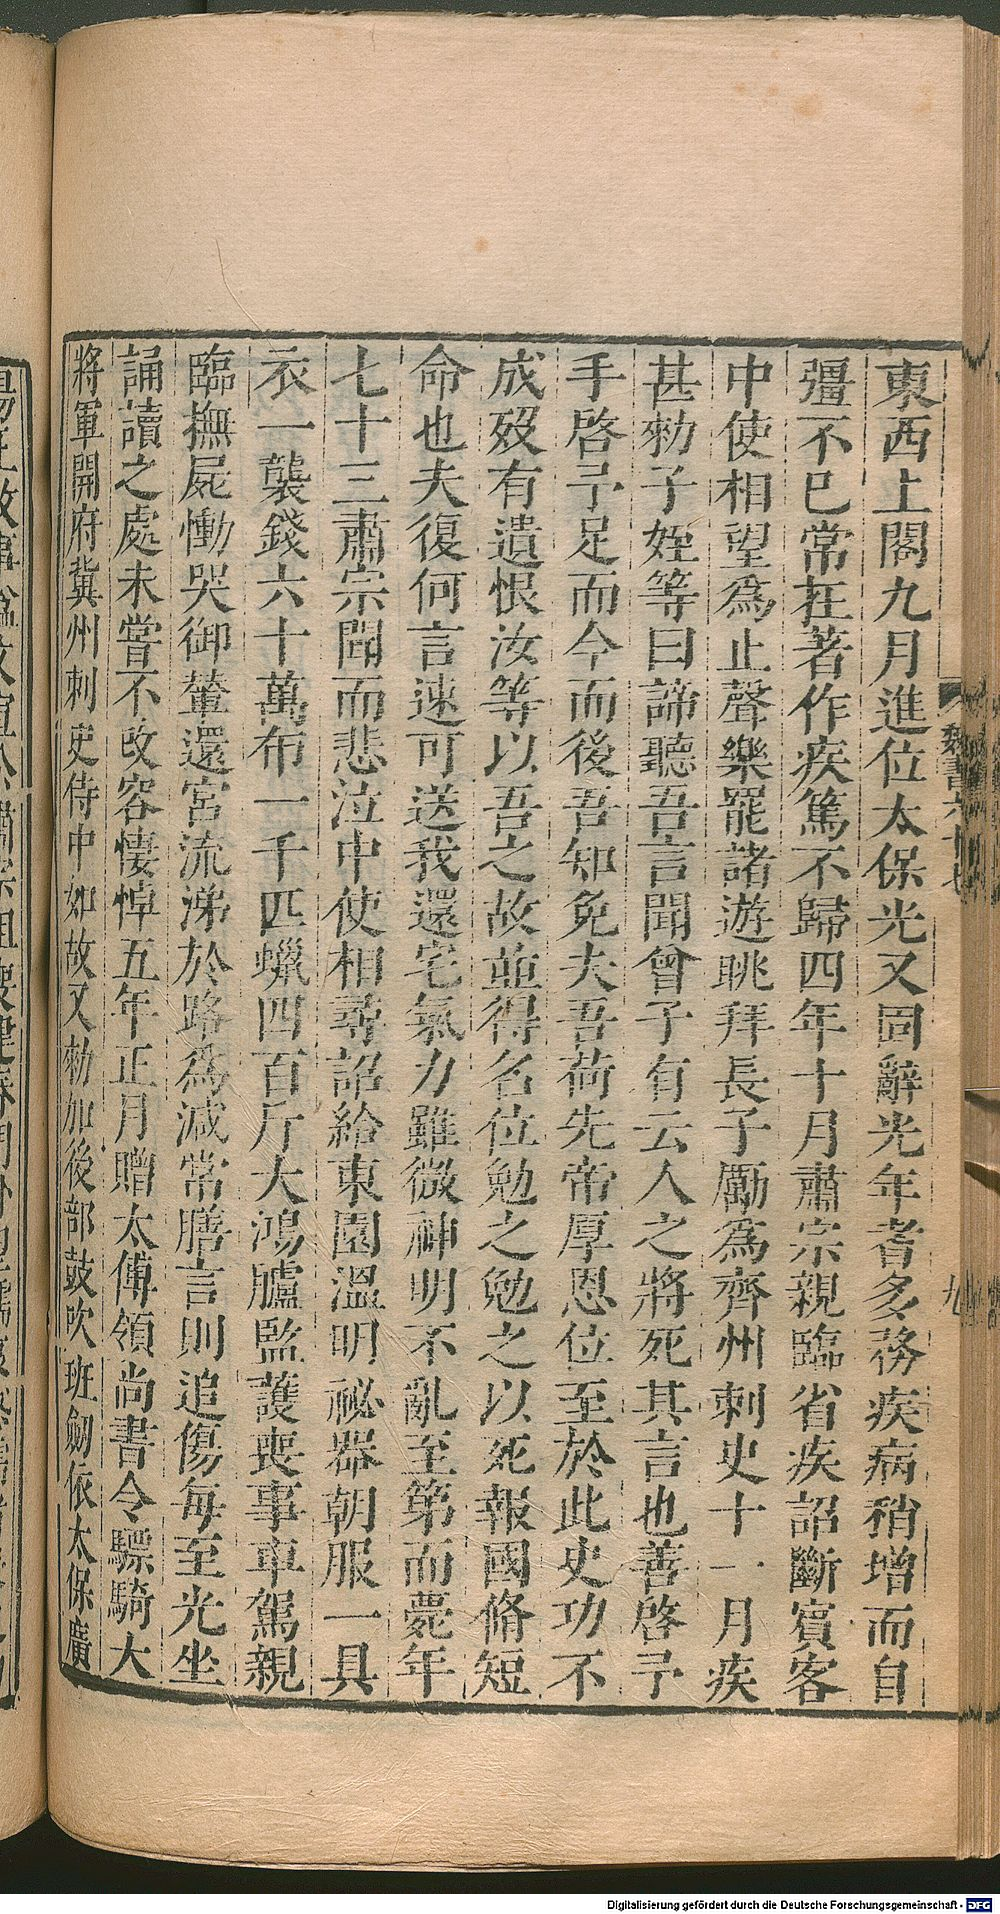 東西上閣九月進位太保光又固辭光年耆多務疾病稍增而自
彊不已常在著作疾篤不歸四年十月肅宗親臨省疾詔斷賓客
中使相望為止聲樂罷諸遊眺拜長子勵為齊州刺史十一月疾
甚勑子姪等曰諦聽吾言聞曾子有云人之將死其言也善啓予
手啓予足而今而後吾知免夫吾荷先帝厚恩位至於此史功不
成歿有遺恨汝等以吾之故並得名位勉之勉之以死報國脩短
命也夫復何言速可送我還宅氣力雖微神明不亂至第而薨年
七十三肅宗聞而悲泣中使相尋詔給東園溫明祕器朝服一具
衣一襲錢六十萬布一千匹蠟四百斤大鴻臚監護喪事車駕親
臨撫屍慟哭御輦還宮流涕於路為減常膳言則追傷每至光坐
誦讀之處未嘗不改容悽悼五年正月贈太傅領尚書令驃騎大
將軍開府冀州刺史侍中如故又勑加後部鼓吹班劒依太保廣
魏書六十七
九
Digitalisierung gefördert durch die Deutsche Forschungsgemeinschaft - DFG